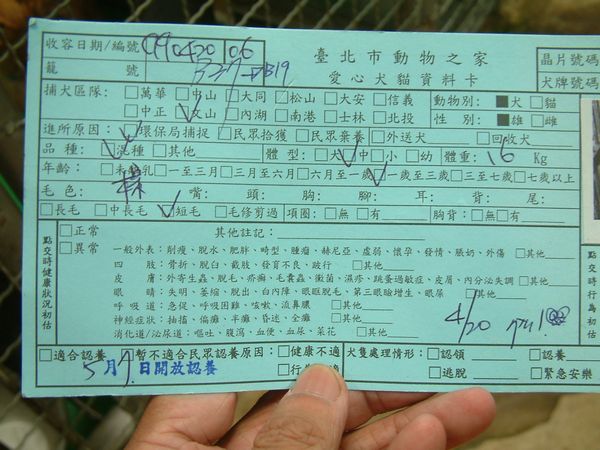 收容日期/編號 090420 06
臺北市動物之家
晶片號碼
籠 號
愛心犬貓資料卡
犬牌號碼
捕犬區隊: □萬華 □中山 □大同 □松山 □大安 □信義 動物別: ■犬 □貓
□中正 □文山 □內湖 □南港 □士林 □北投 性 別: ■雄 □雌
進所原因: □環保局捕捉 □民眾拾獲 □民眾棄養 □外送犬 □回收犬
品 種: □混種 □其他 體 型: □大 □中 □小 □幼 體重: 16 Kg
年齡: □未離乳 □一至三月 □三月至六月 □六月至一歲 □一歲至三歲 □三至七歲 □七歲以上
毛 色: 嘴: 頭: 胸: 腳: 耳: 背: 尾:
□長毛 □中長毛 □短毛 □毛修剪過 項圈: □無 □有 胸背: □無 □有
點交時健康狀況初估
□正常 其他註記:
□異常 一般外表: 削瘦、脫水、肥胖、畸型、腫瘤、赫尼亞、虛弱、懷孕、發情、脹奶、外傷 □其他
四 肢: 骨折、脫臼、截肢、發育不良、跛行 □其他
皮 膚: 外寄生蟲、脫毛、疥癬、毛囊蟲、黴菌、濕疹、跳蚤過敏症、皮屑、內分泌失調 □其他
眼 睛: 失明、萎縮、脫出、白內障、眼眶脫毛、第三眼瞼增生、眼屎 □其他
呼 吸 道: 急促、呼吸困難、咳嗽、流鼻膿 □其他
神經症狀: 抽搐、偏癱、半癱、昏迷、全癱 □其他
消化道/泌尿道: 嘔吐、腹瀉、血便、血尿、菜花 □其他
4/20
點交時行為初估
□適合認養 □暫不適合民眾認養原因: □健康不適 犬隻處理情形: □認領 □認養
5月7日開放認養 □行為不適 □逃脫 □緊急安樂